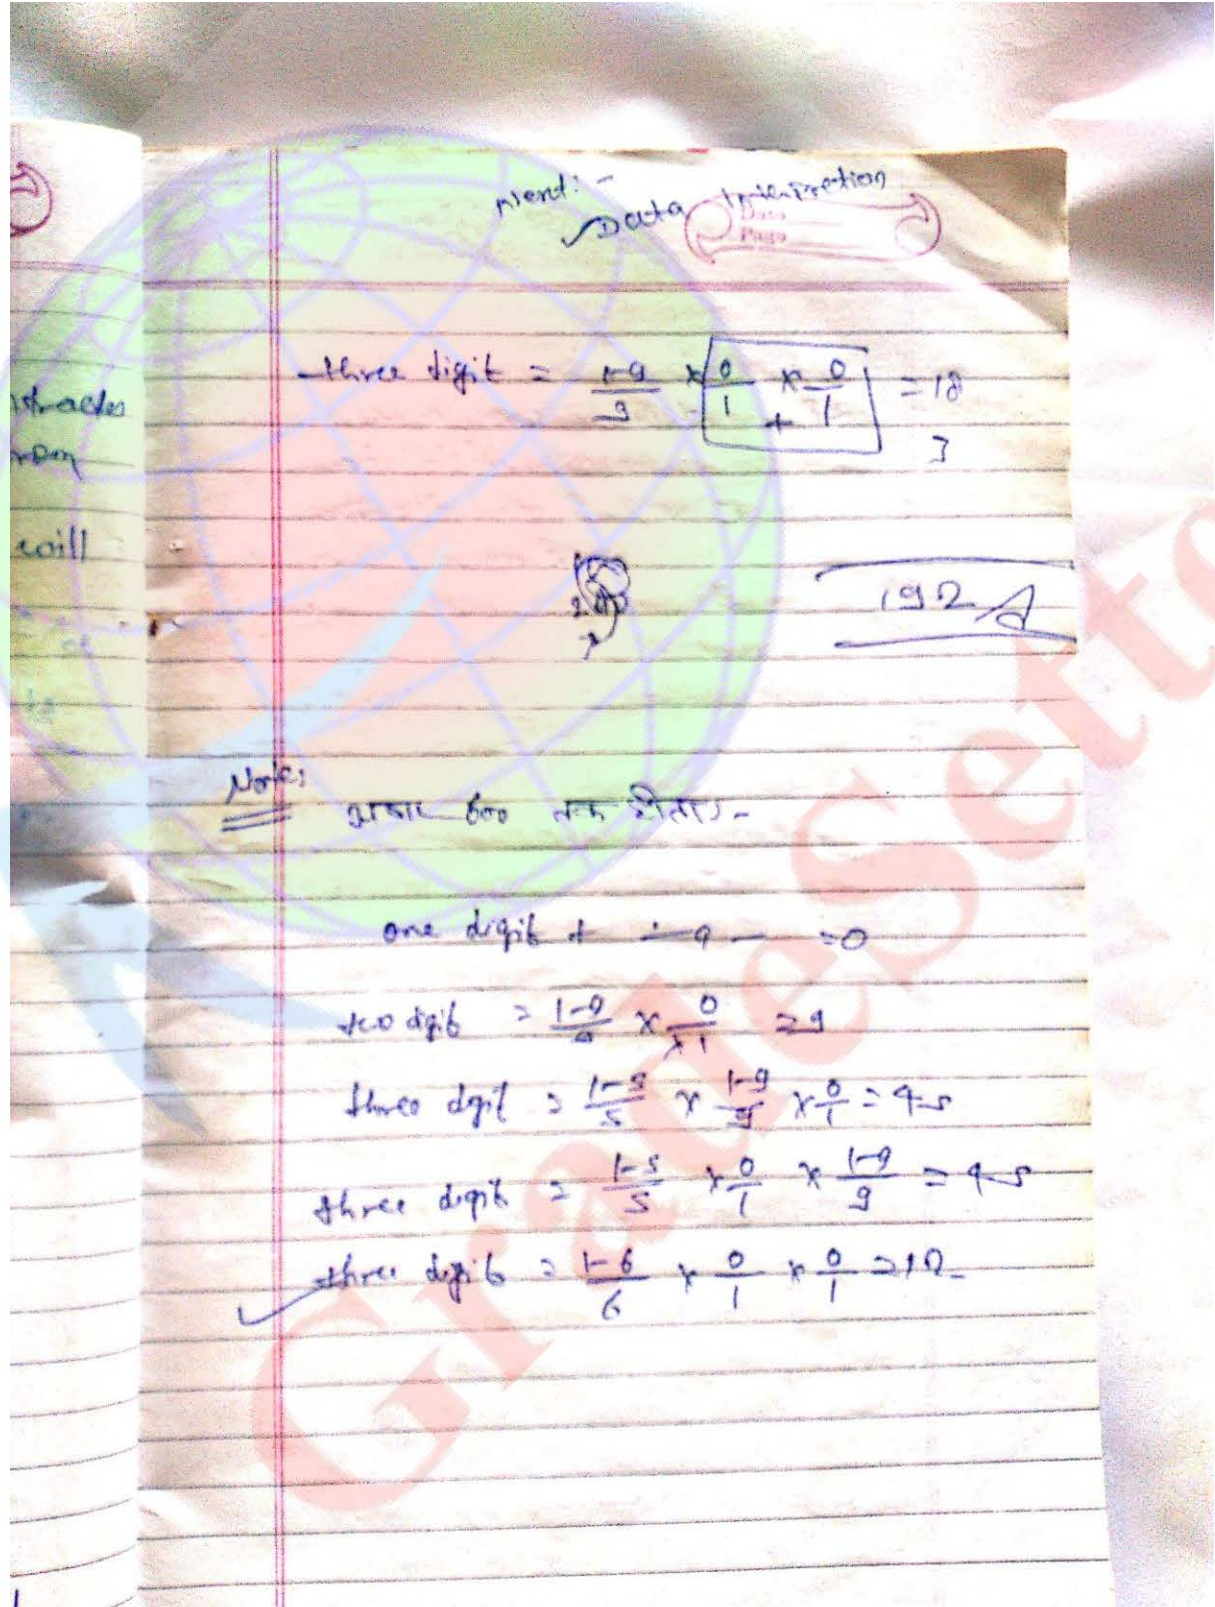 Next:-
Data Interpretion
Date
Page
three digit = 1-9/9 × 0/1 × 0/1 = 18
+
3
will
192 A
Note:
अगर 600 तक होता -
one digit + ÷ 9 — = 0
two digit = 1-9/9 × 0/×1 = 9
three digit = 1-5/5 × 1-9/9 × 0/1 = 45
three digit = 1-5/5 × 0/1 × 1-9/9 = 45
three digit = 1-6/6 × 0/1 × 0/1 = 12
GradeSetter